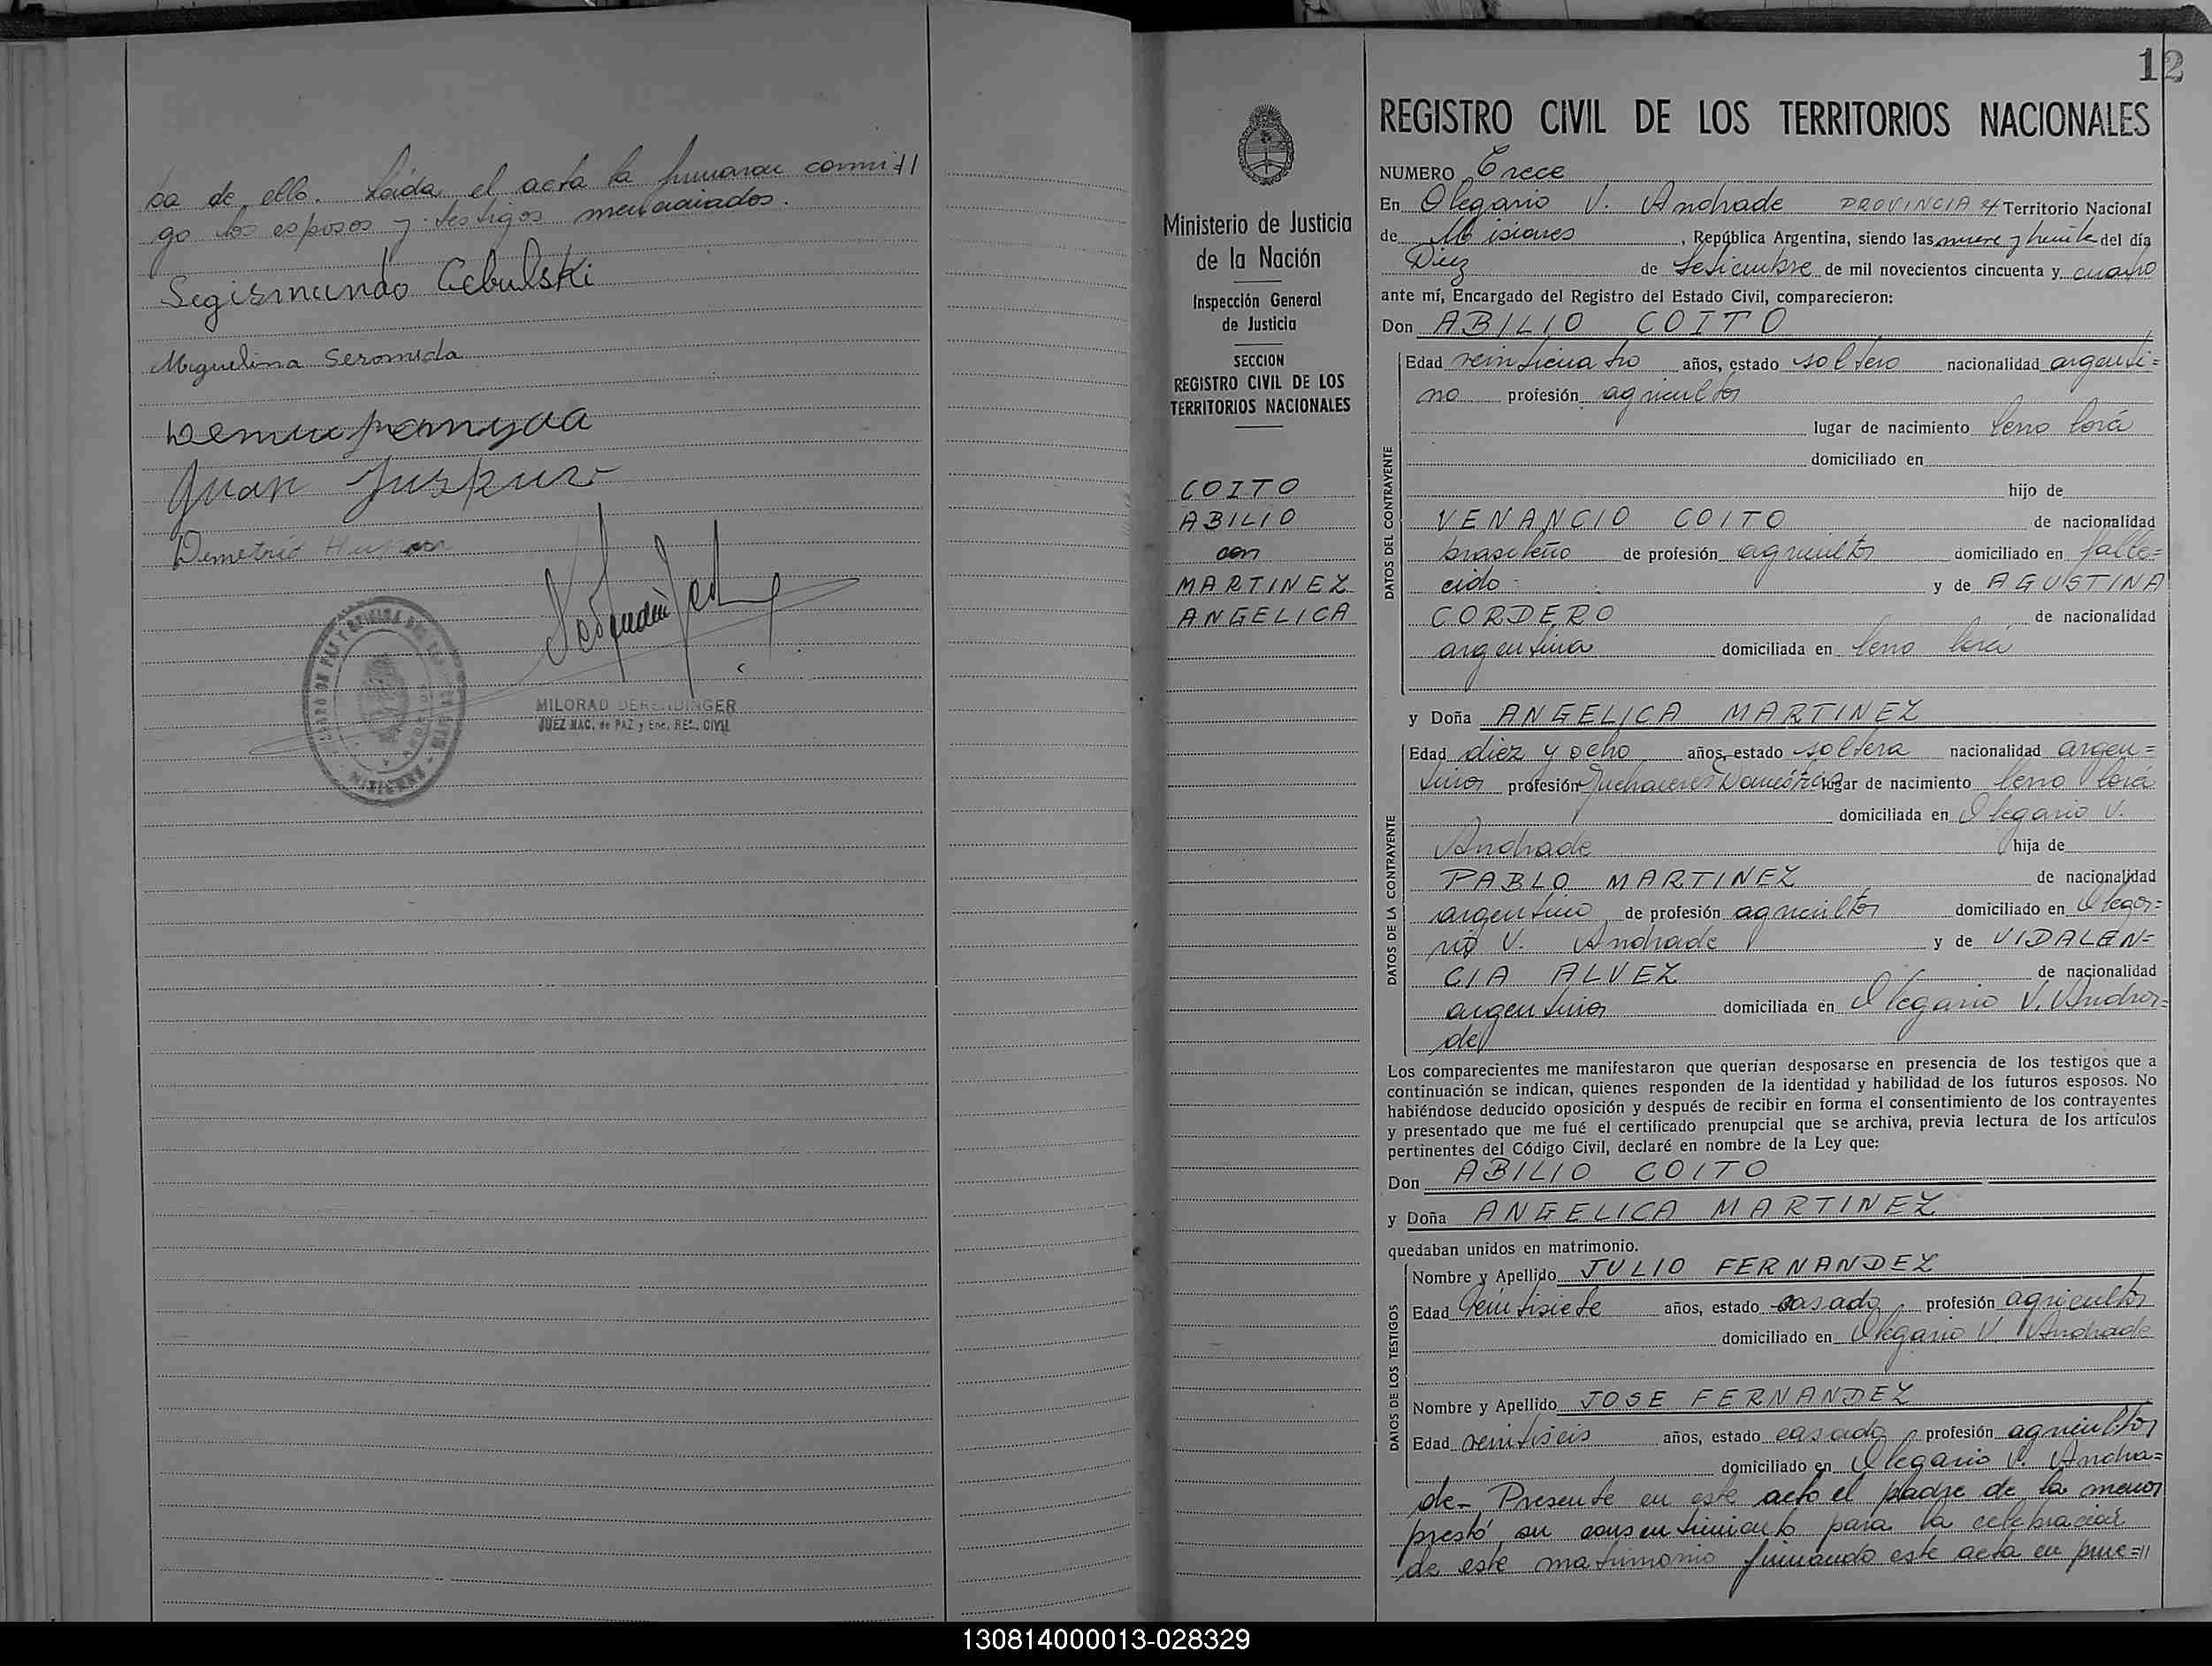 ba de ello. Leida el acta la firmaron conmi=//
go los esposos y testigos mencionados.
Segismundo Cebulski
Miguelina Seromida
Juan
Demetrio
MILORAD DERENDINGER
JUEZ NAC. de PAZ y Enc. REG. CIVIL
MISIONES
12
Ministerio de Justicia
de la Nación
Inspección General
de Justicia
SECCION
REGISTRO CIVIL DE LOS
TERRITORIOS NACIONALES
COITO
ABILIO
con
MARTINEZ
ANGELICA
REGISTRO CIVIL DE LOS TERRITORIOS NACIONALES
NUMERO Trece
En Olegario V. Andrade PROVINCIA Territorio Nacional
de Misiones, República Argentina, siendo las nueve y treinta del día
Diez de Setiembre de mil novecientos cincuenta y cuatro
ante mí, Encargado del Registro del Estado Civil, comparecieron:
Don ABILIO COITO
DATOS DEL CONTRAYENTE
Edad veinticuatro años, estado soltero nacionalidad argenti=
no profesión agricultor
lugar de nacimiento Cerro Corá
domiciliado en
hijo de
VENANCIO COITO de nacionalidad
brasileño de profesión agricultor domiciliado en falle=
cido- y de AGUSTINA
CORDERO de nacionalidad
argentina domiciliada en Cerro Corá
y Doña ANGELICA MARTINEZ
DATOS DE LA CONTRAYENTE
Edad diez y ocho años, estado soltera nacionalidad argen=
tina profesión Quehaceres Domésticos lugar de nacimiento Cerro Corá
domiciliada en Olegario V.
Andrade hija de
PABLO MARTINEZ de nacionalidad
argentino de profesión agricultor domiciliado en Olega=
rio V. Andrade y de VIDALEN=
CIA ALVEZ de nacionalidad
argentina domiciliada en Olegario V. Andra=
de
Los comparecientes me manifestaron que querían desposarse en presencia de los testigos que a
continuación se indican, quienes responden de la identidad y habilidad de los futuros esposos. No
habiéndose deducido oposición y después de recibir en forma el consentimiento de los contrayentes
y presentado que me fué el certificado prenupcial que se archiva, previa lectura de los artículos
pertinentes del Código Civil, declaré en nombre de la Ley que:
Don ABILIO COITO
y Doña ANGELICA MARTINEZ
quedaban unidos en matrimonio.
DATOS DE LOS TESTIGOS
Nombre y Apellido JULIO FERNANDEZ
Edad Veintisiete años, estado casado profesión agricultor
domiciliado en Olegario V. Andrade
Nombre y Apellido JOSE FERNANDEZ
Edad veintiseis años, estado casado profesión agricultor
domiciliado en Olegario V. Andra=
de- Presente en este acto el padre de la menor
prestó su consentimiento para la celebración
de este matrimonio firmando este acta en prue=//
130814000013-028329